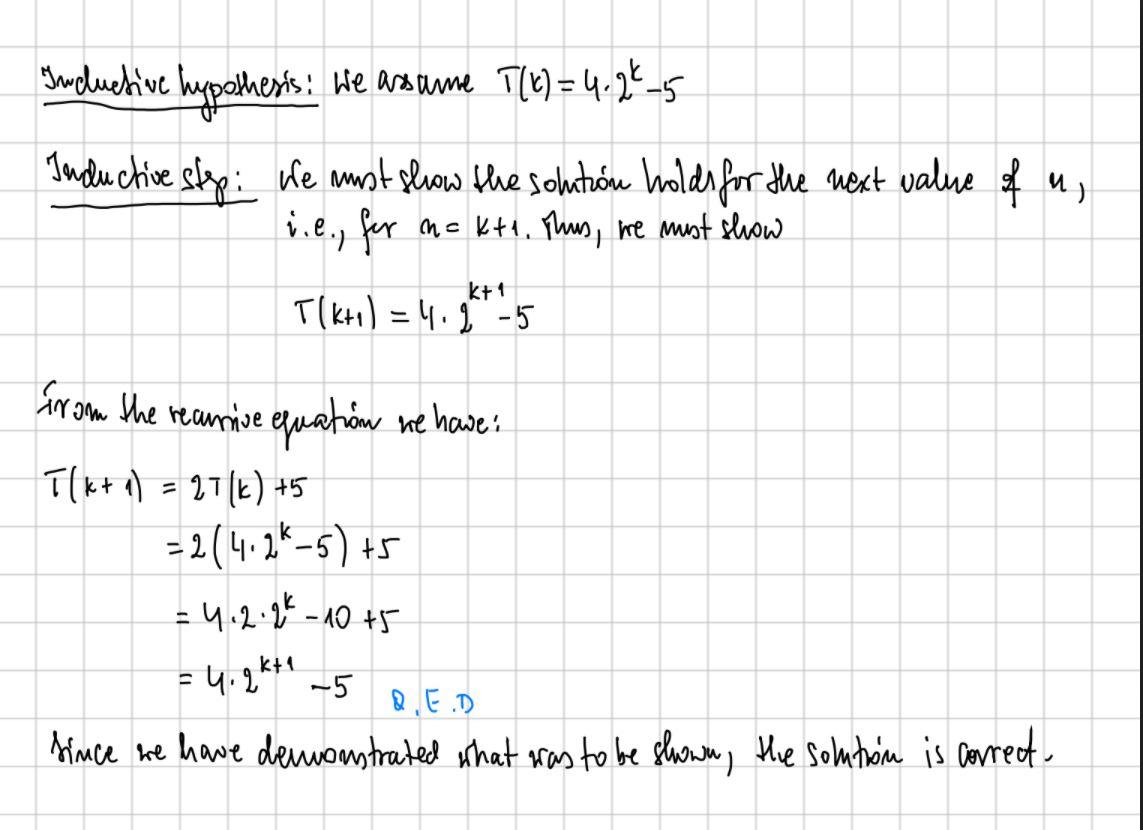 Inductive hypothesis: We assume T(k) = 4·2^k - 5
Inductive step: We must show the solution holds for the next value of n,
i.e., for n = k+1. Thus, we must show
T(k+1) = 4·2^{k+1} - 5
From the recursive equation we have:
T(k+1) = 2T(k) + 5
= 2(4·2^k - 5) + 5
= 4·2·2^k - 10 + 5
= 4·2^{k+1} - 5
Q.E.D
Since we have demonstrated what was to be shown, the solution is correct.